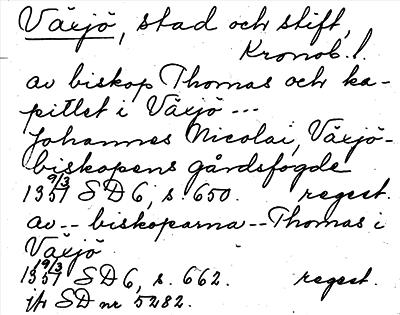 Växjö, stad och stift,
Kronob. l.
av biskop Thomas och ka-
pitlet i Växjö ---
Johannes Nicolai, Växjö-
biskopens gårdsfogde
1351 9/3 SD 6, s. 650. regest.
av -- biskoparna -- Thomas i
Växjö
1351 19/3 SD 6, s. 662. regest.
jfr SD nr 5282.